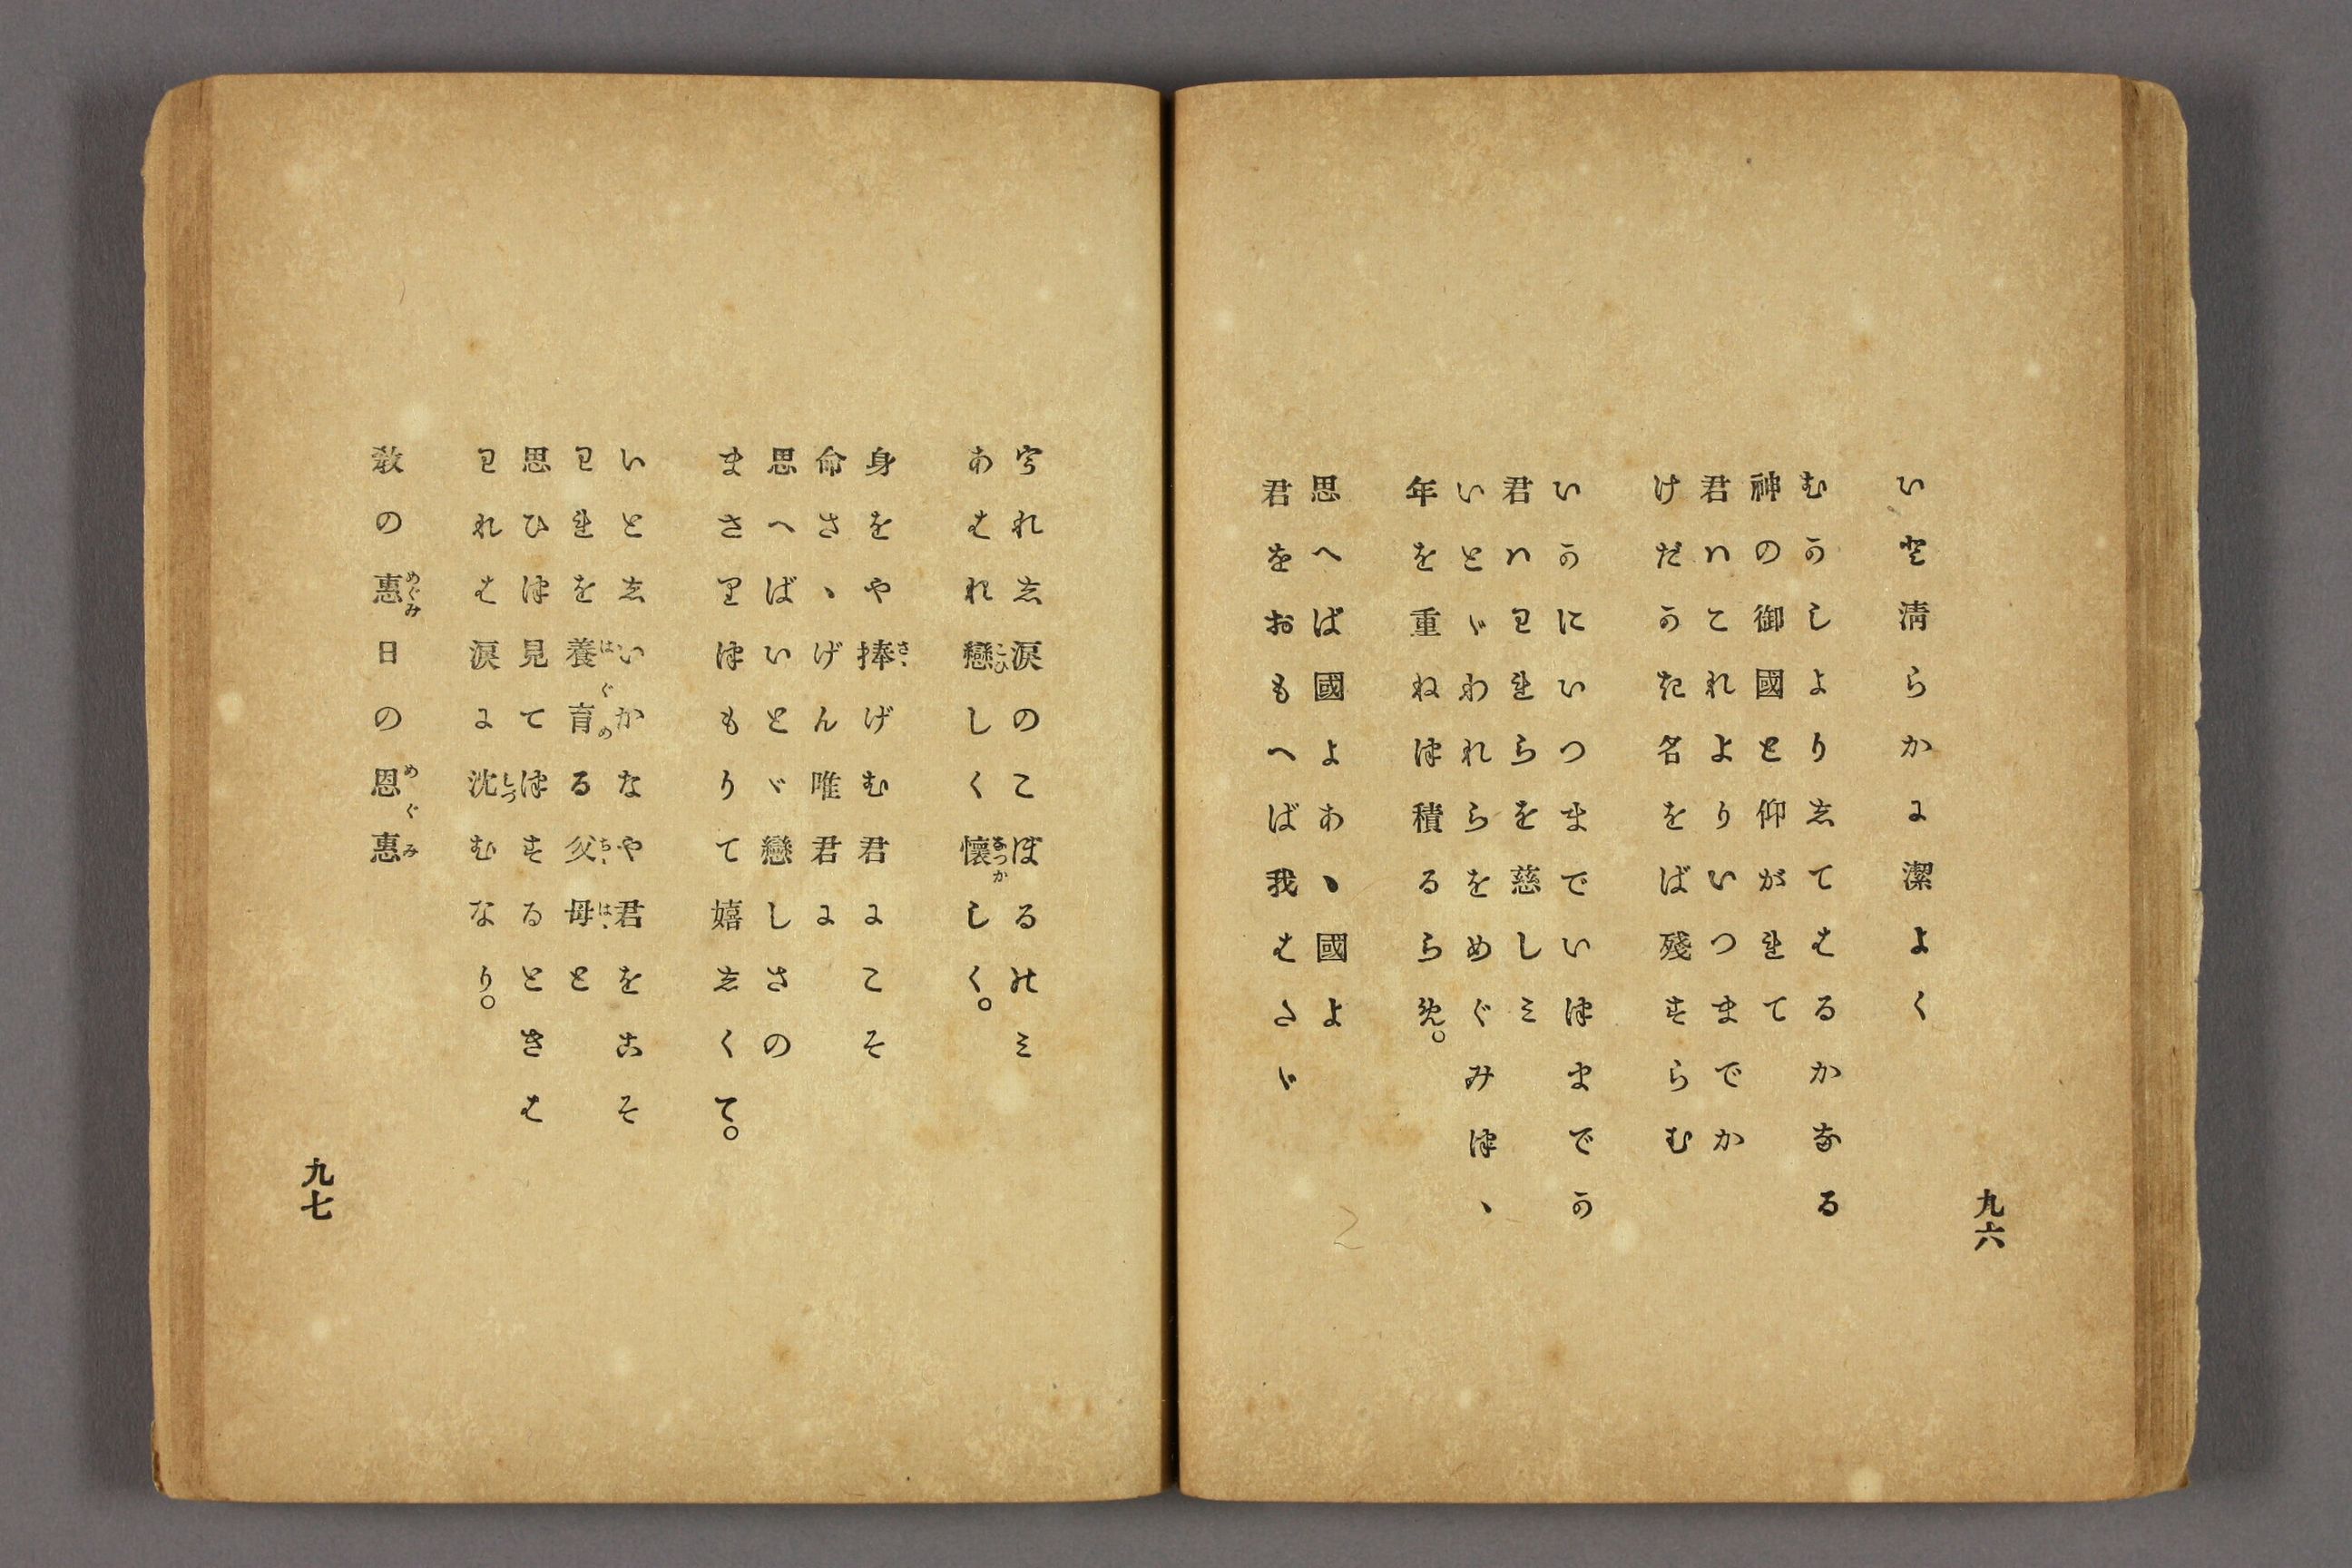 九六
いと淸らかに潔よく
むかしよりしてはるかなる
神の御國と仰がれて
君ハこれよりいつまでか
けだかき名をば殘すらむ
いかにいつまでいつまでか
君ハわれらを慈しミ
いとゞわれらをめぐみつゝ
年を重ねつ積るらめ。
思へば國よあゝ國よ
君をおもへば我はたゞ
うれし涙のこぼるのミ
あはれ戀しく懷しく。
身をや捧げむ君にこそ
命さゝげん唯君に
思へばいとゞ戀しさの
まさりつもりて嬉しくて。
いとしいかなや君をこそ
われを養育る父母と
思ひつ見てつするときは
われは涙に沈むなり。
敎の惠日の恩惠
九七